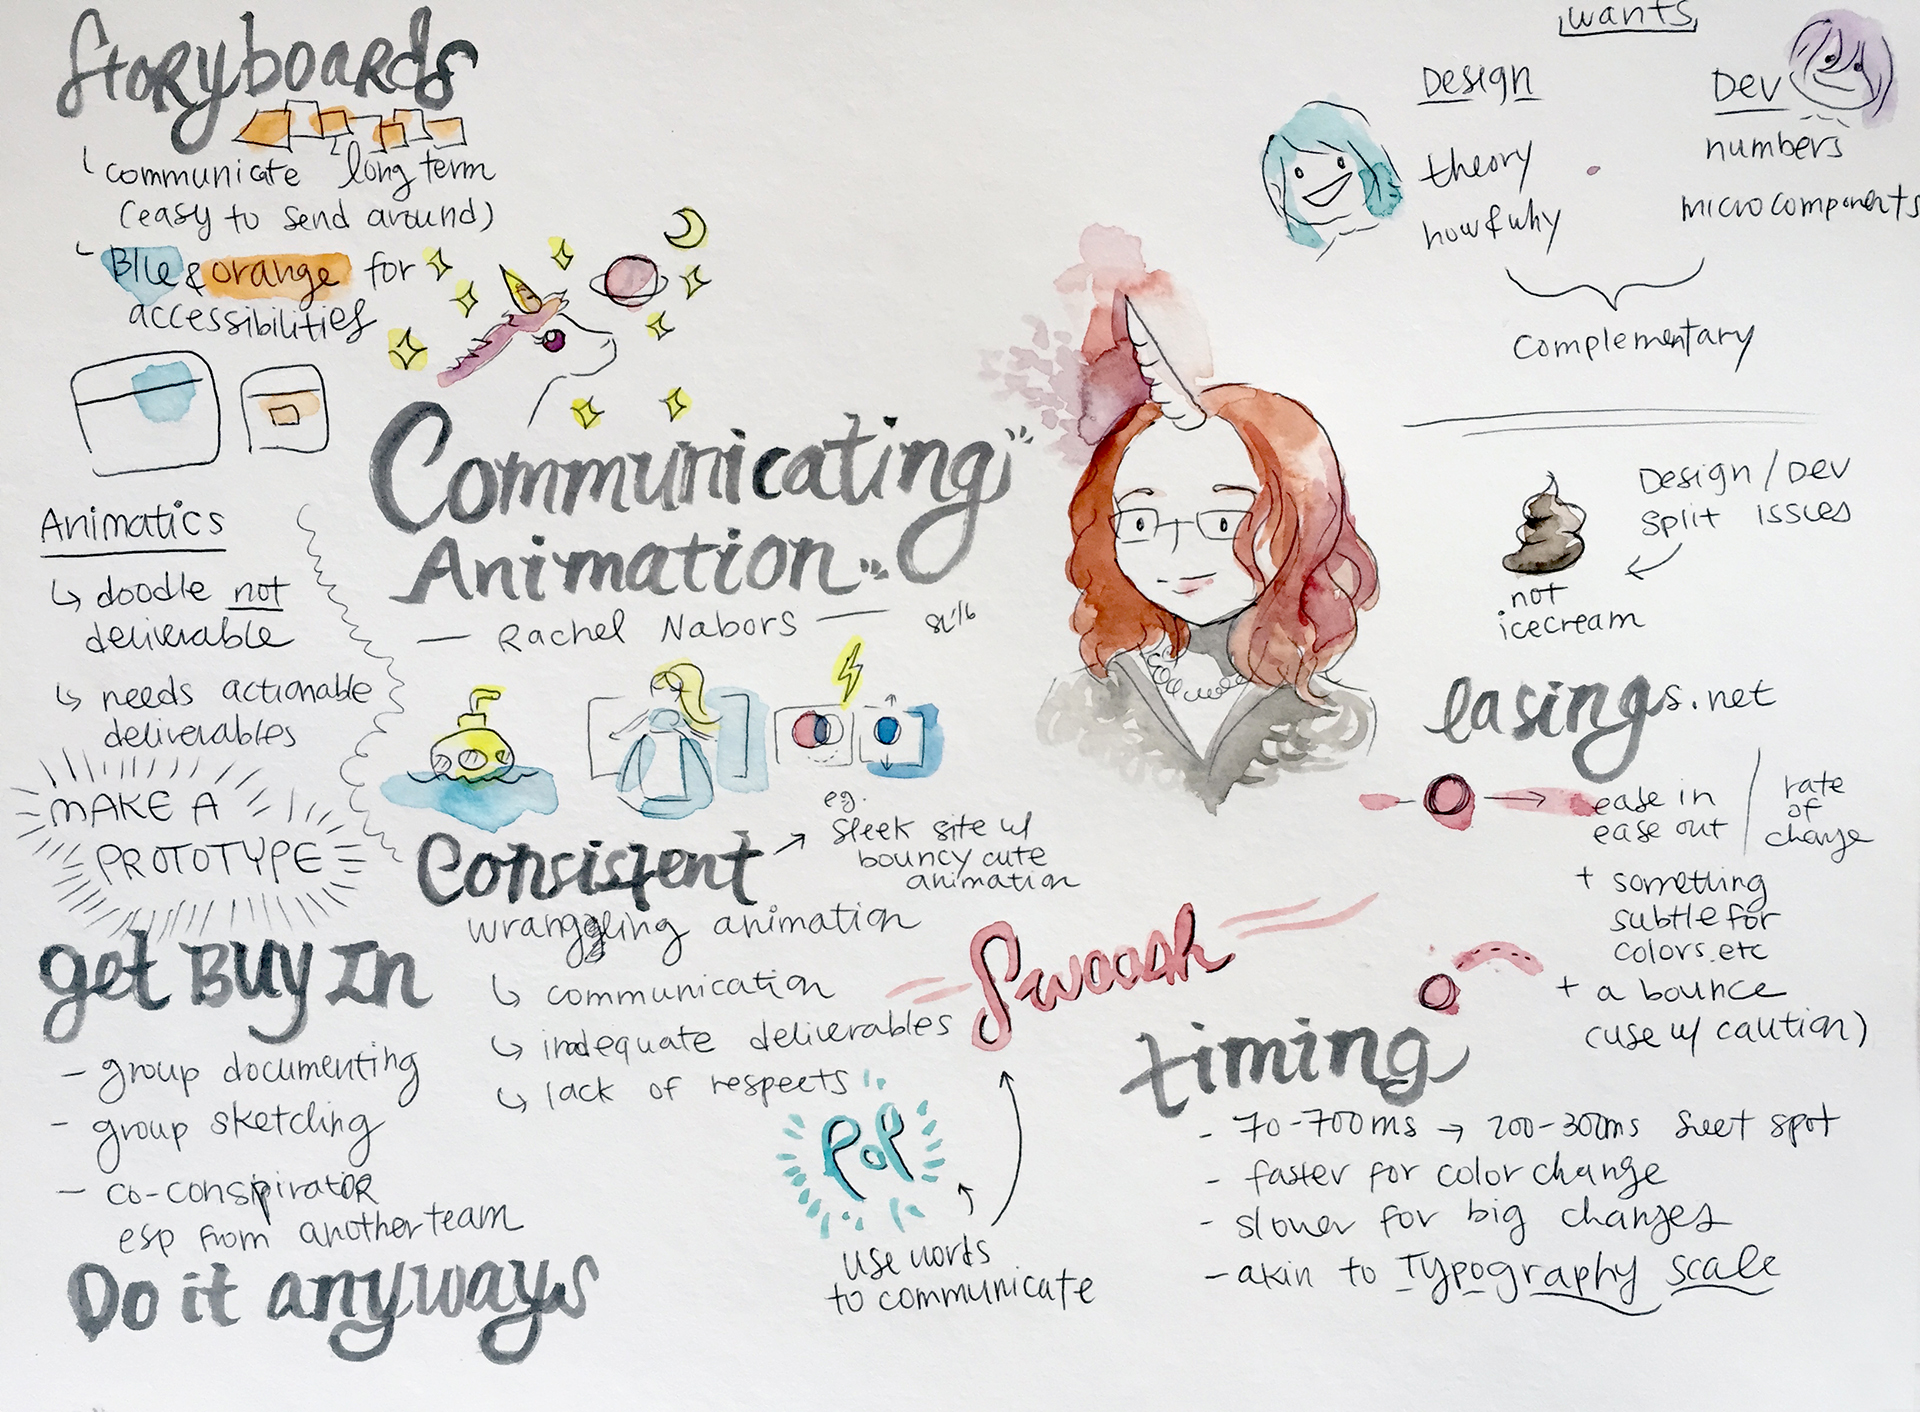 Storyboards
communicate long term
(easy to send around)
Blue & orange for
accessibilities
Animatics
doodle not
deliverable
needs actionable
deliverables
MAKE A
PROTOTYPE
get BUY IN
- group documenting
- group sketching
- co-conspirator
esp from another team
Do it anyways
Communicating
Animation
— Rachel Nabors —
Consistent
eg.
sleek site w/
bouncy cute
animation
wranggling animation
communication
inadequate deliverables
lack of respects
Swoosh
Pop
use words
to communicate
wants
Design
theory
how & why
Dev
numbers
microcomponents
Complementary
Design / Dev
split issues
not
icecream
easings.net
ease in
ease out
rate
of
change
+ something
subtle for
colors. etc
+ a bounce
(use w/ caution)
timing
- 70-700ms → 200-300ms sweet spot
- faster for color change
- slower for big changes
- akin to Typography scale